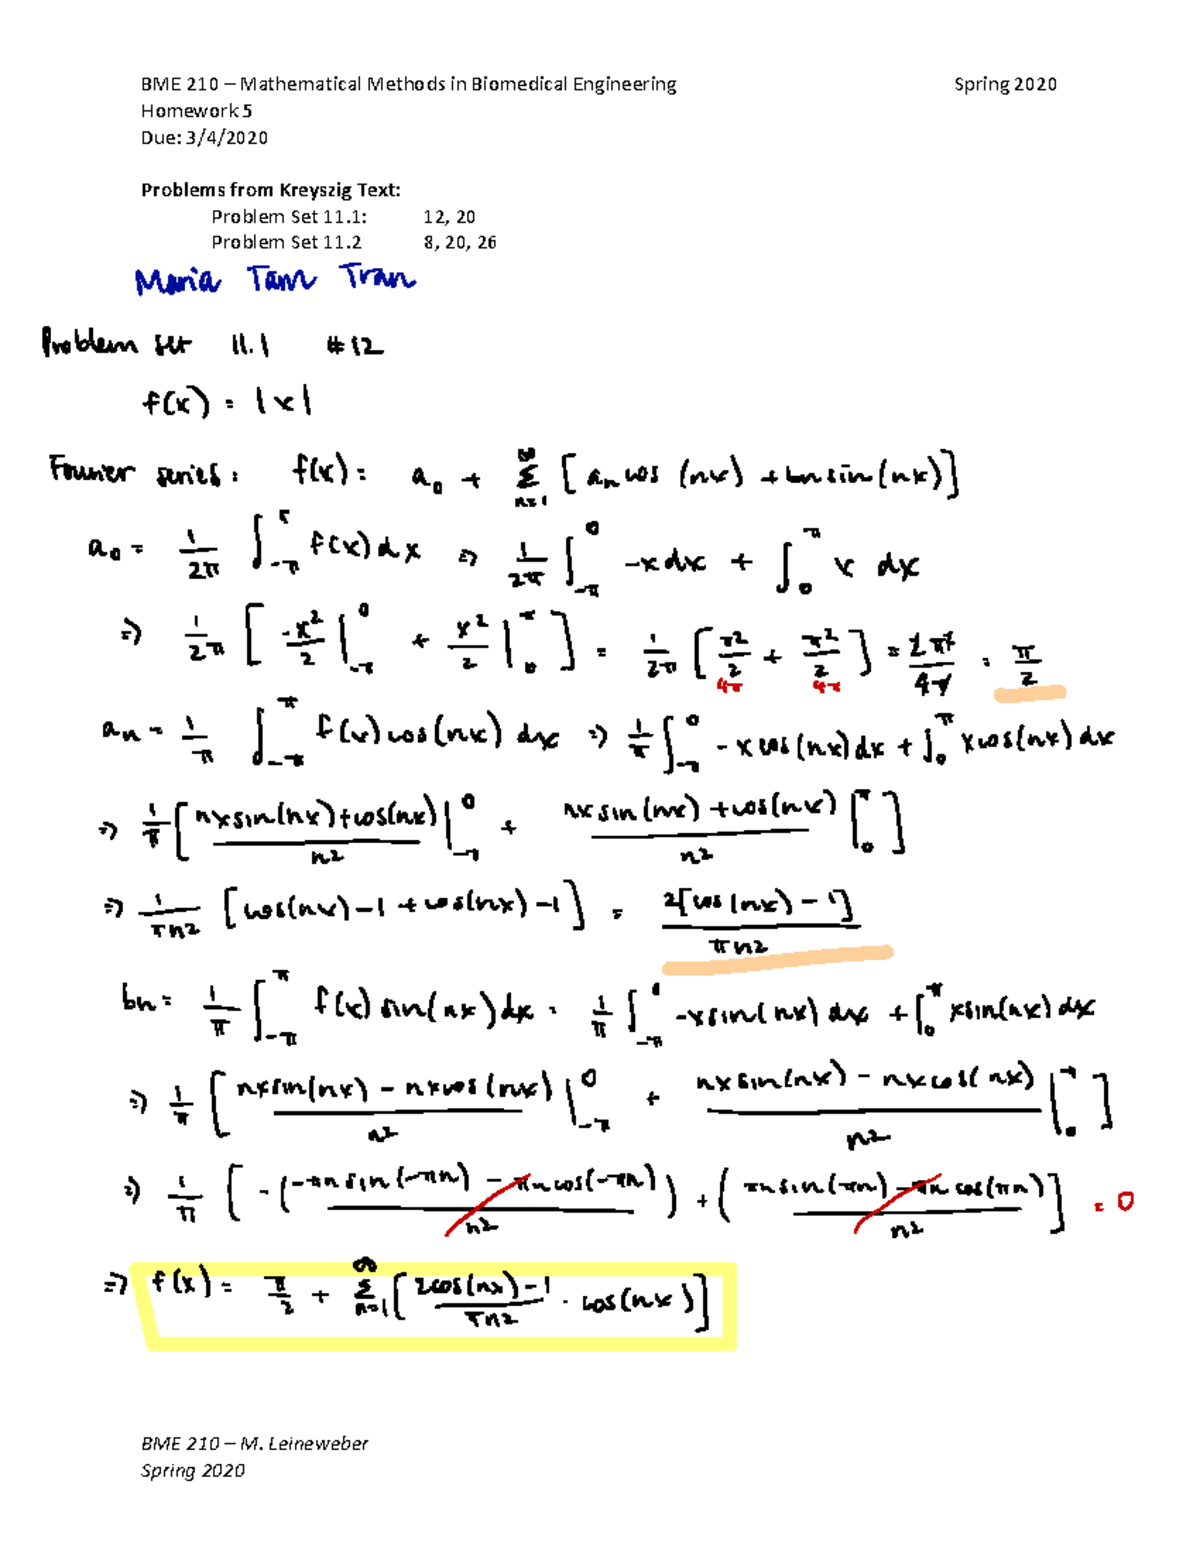 BME 210 – Mathematical Methods in Biomedical Engineering Spring 2020
Homework 5
Due: 3/4/2020
Problems from Kreyszig Text:
Problem Set 11.1: 12, 20
Problem Set 11.2 8, 20, 26
Maria Tam Tran
Problem set 11.1 #12
f(x) = |x|
Fourier series: f(x) = a₀ + Σ_{n=1}^{∞} [a_n cos(nx) + bn sin(nx)]
a₀ = 1/2π ∫_{-π}^{π} f(x)dx ⇒ 1/2π ∫_{-π}^{0} -xdx + ∫_{0}^{π} x dx
⇒ 1/2π [ -x²/2 |_{-π}^{0} + x²/2 |_{0}^{π} ] = 1/2π [ π²/2 + π²/2 ] = 2π²/4π = π/2
4π 4π
a_n = 1/π ∫_{-π}^{π} f(x)cos(nx) dx ⇒ 1/π ∫_{-π}^{0} -xcos(nx)dx + ∫_{0}^{π} xcos(nx)dx
⇒ 1/π [ (nxsin(nx)+cos(nx))/n² |_{-π}^{0} + (nxsin(nx)+cos(nx))/n² |_{0}^{π} ]
⇒ 1/πn² [cos(nx)-1+cos(nx)-1] = 2[cos(nx)-1]/πn²
bn = 1/π ∫_{-π}^{π} f(x)sin(nx)dx = 1/π ∫_{-π}^{0} -xsin(nx)dx + ∫_{0}^{π} xsin(nx)dx
⇒ 1/π [ (nxsin(nx) - nxcos(nx))/n² |_{-π}^{0} + (nxsin(nx) - nxcos(nx))/n² |_{0}^{π} ]
⇒ 1/π [ -( (-πnsin(-πn) - πncos(-πn))/n² ) + ( (πnsin(πn) - πncos(πn))/n² ] = 0
⇒ f(x) = π/2 + Σ_{n=1}^{∞} [ (2cos(nx)-1)/πn² · cos(nx) ]
BME 210 – M. Leineweber
Spring 2020